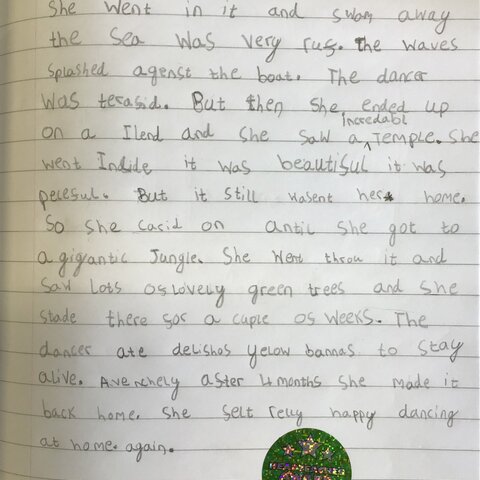 She went in it and swam away
the sea was very ruf. the waves
splashed agenst the boat. The dancer
was terasid. But then she ended up
incredabl
on a Ilend and she saw a temple. She
went Indide it was beautiful it was
peceful. But it still wasent her home.
So she carid on antil she got to
a gigantic Jungle. She went throw it and
saw lots of lovely green trees and she
stade there for a cuple of weeks. The
dancer ate delishos yelow bannas to stay
alive. Avenchely after 4 months she made it
back home. she felt relly happy dancing
at home. again.